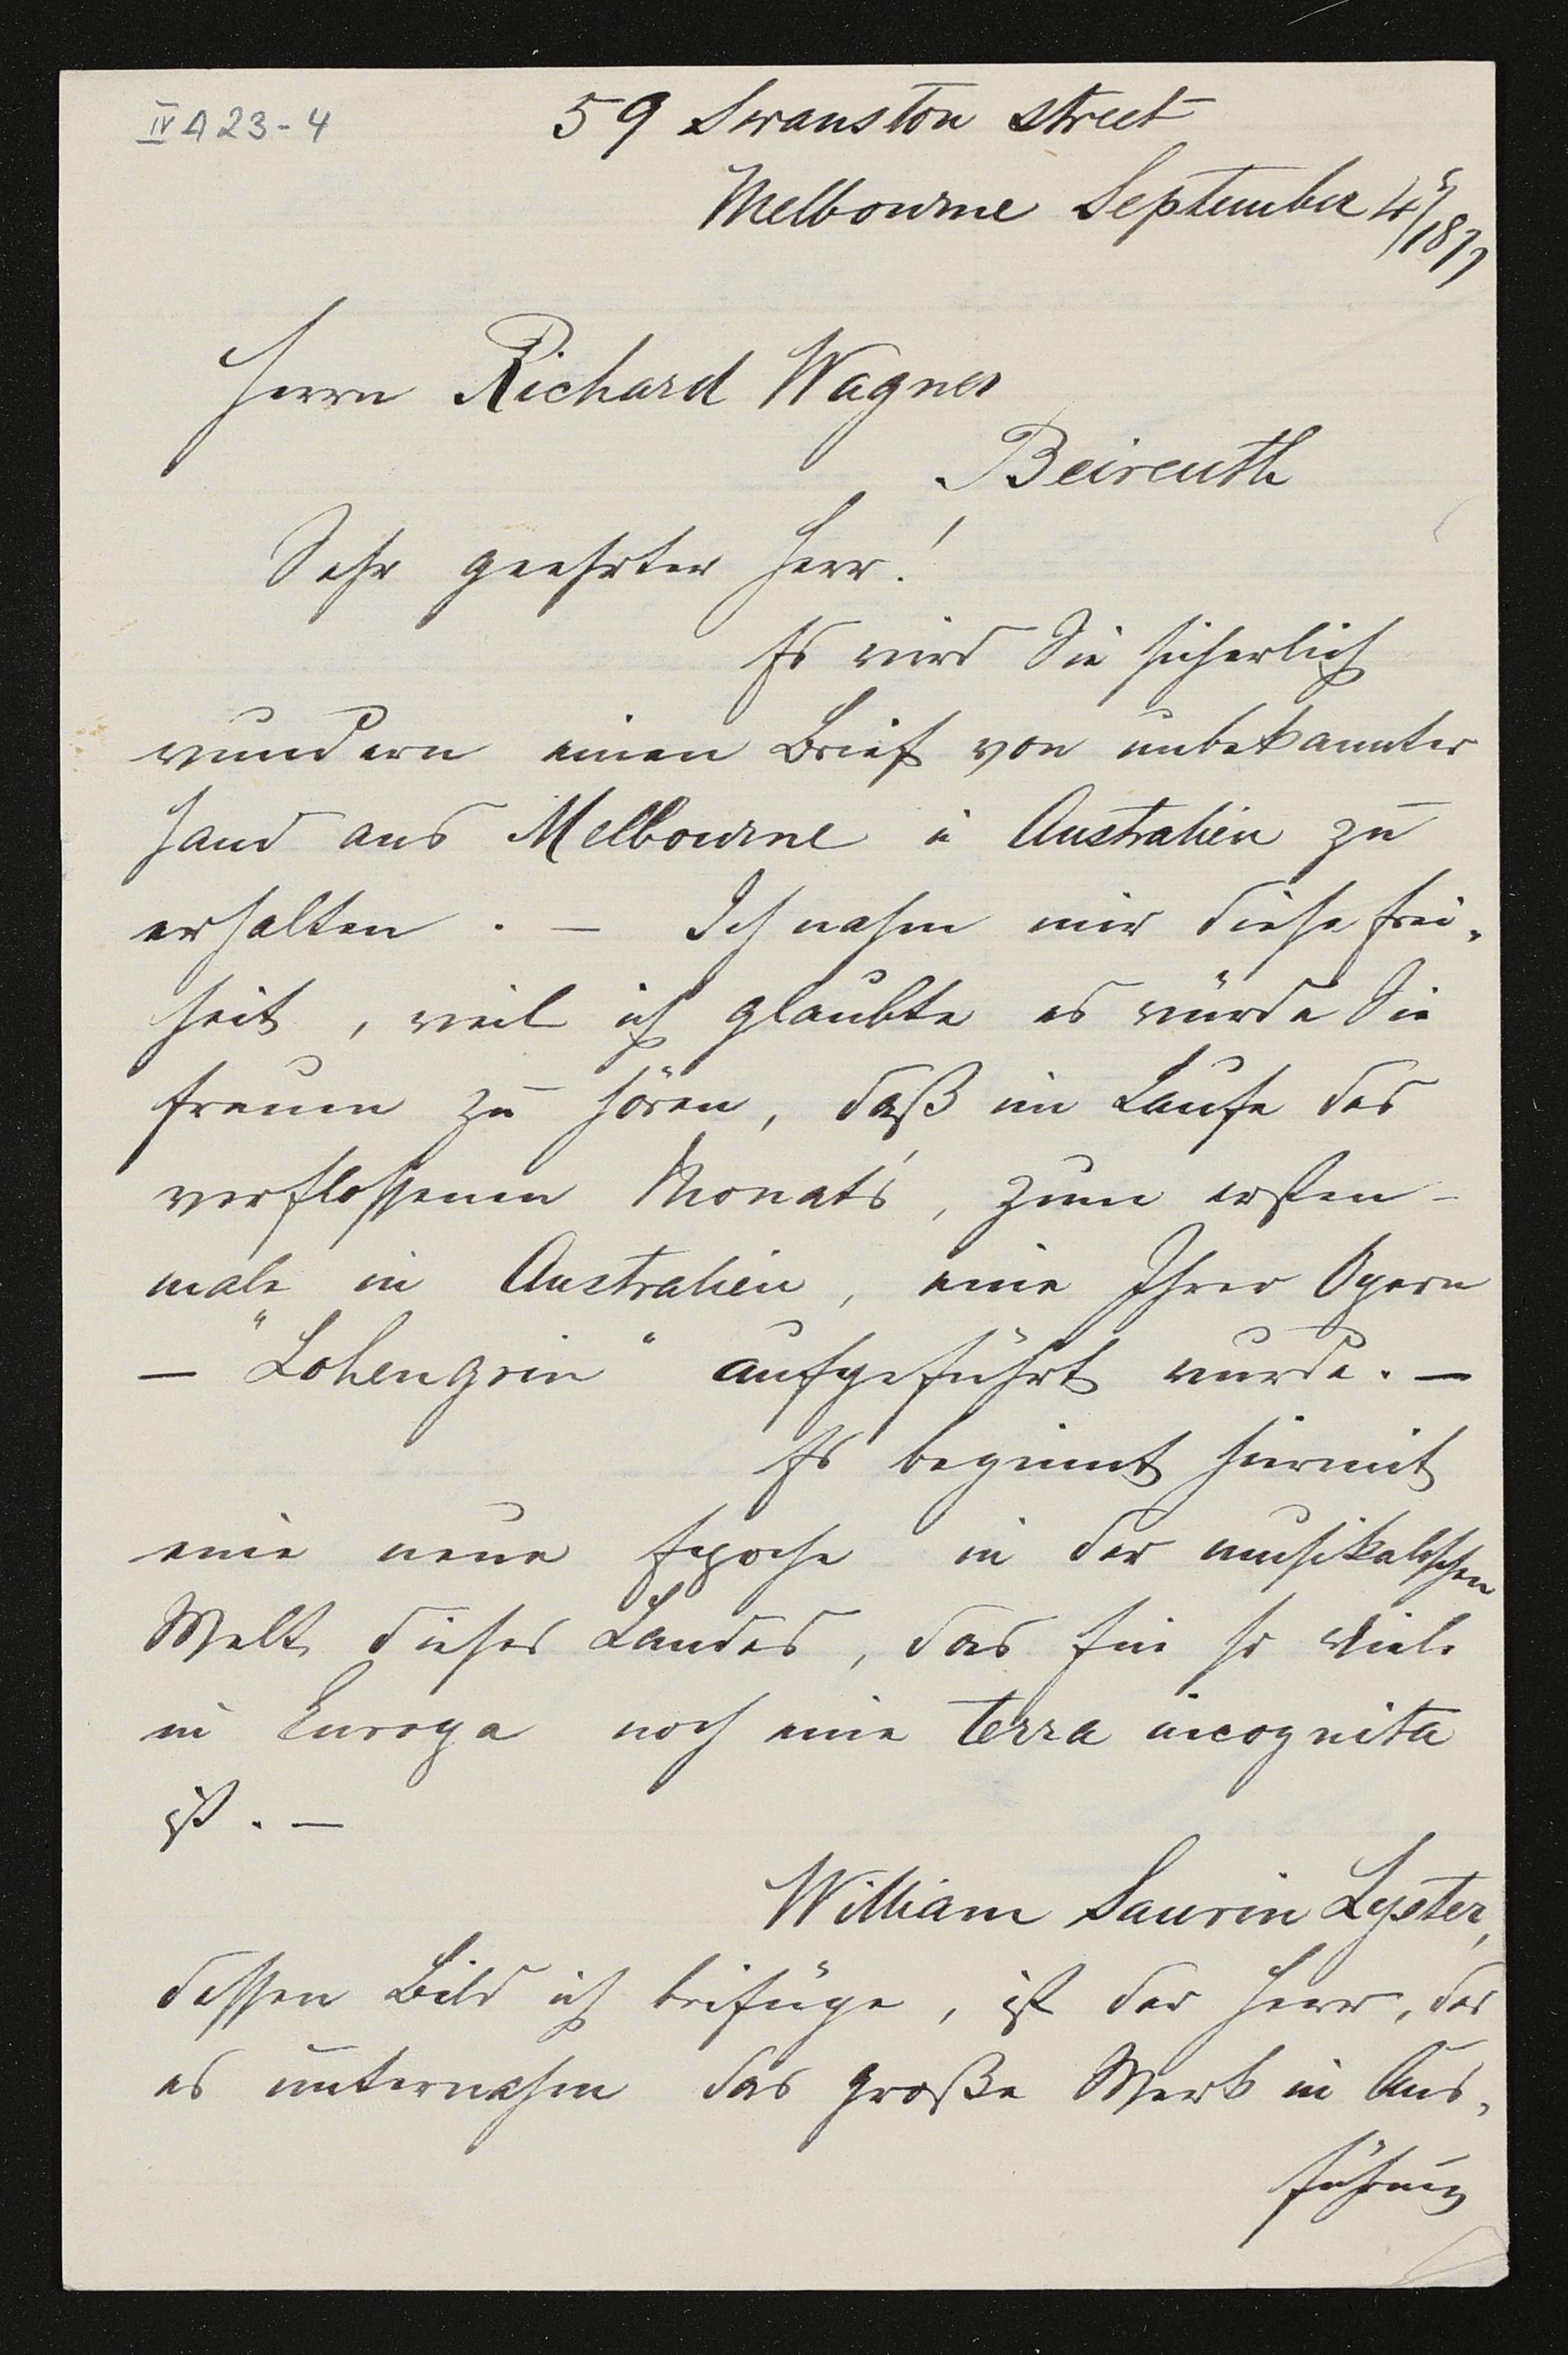 IV A 23-4
59 Swanston street
Melbourne September 4/1877
Herrn Richard Wagner
Beireuth
Sehr geehrter Herr!
Es wird Sie sicherlich
wundern einen Brief von unbekannter
Hand aus Melbourne in Australien zu
erhalten. — Ich nahm mir diese Frei-
heit, weil ich glaubte es würde Sie
freuen zu hören, daß im Laufe des
verflossenen Monats, zum ersten-
male in Australien, eine Ihrer Opern
— "Lohengrin" aufgeführt wurde. —
Es beginnt hiermit
eine neue Epoche in der musikalischen
Welt dieses Landes, das für so Viele
in Europa noch eine terra incognita
ist. —
William Saurin Lyster,
dessen Bild ich beifüge, ist der Herr, der
es unternahm das große Werk in Aus-
führung